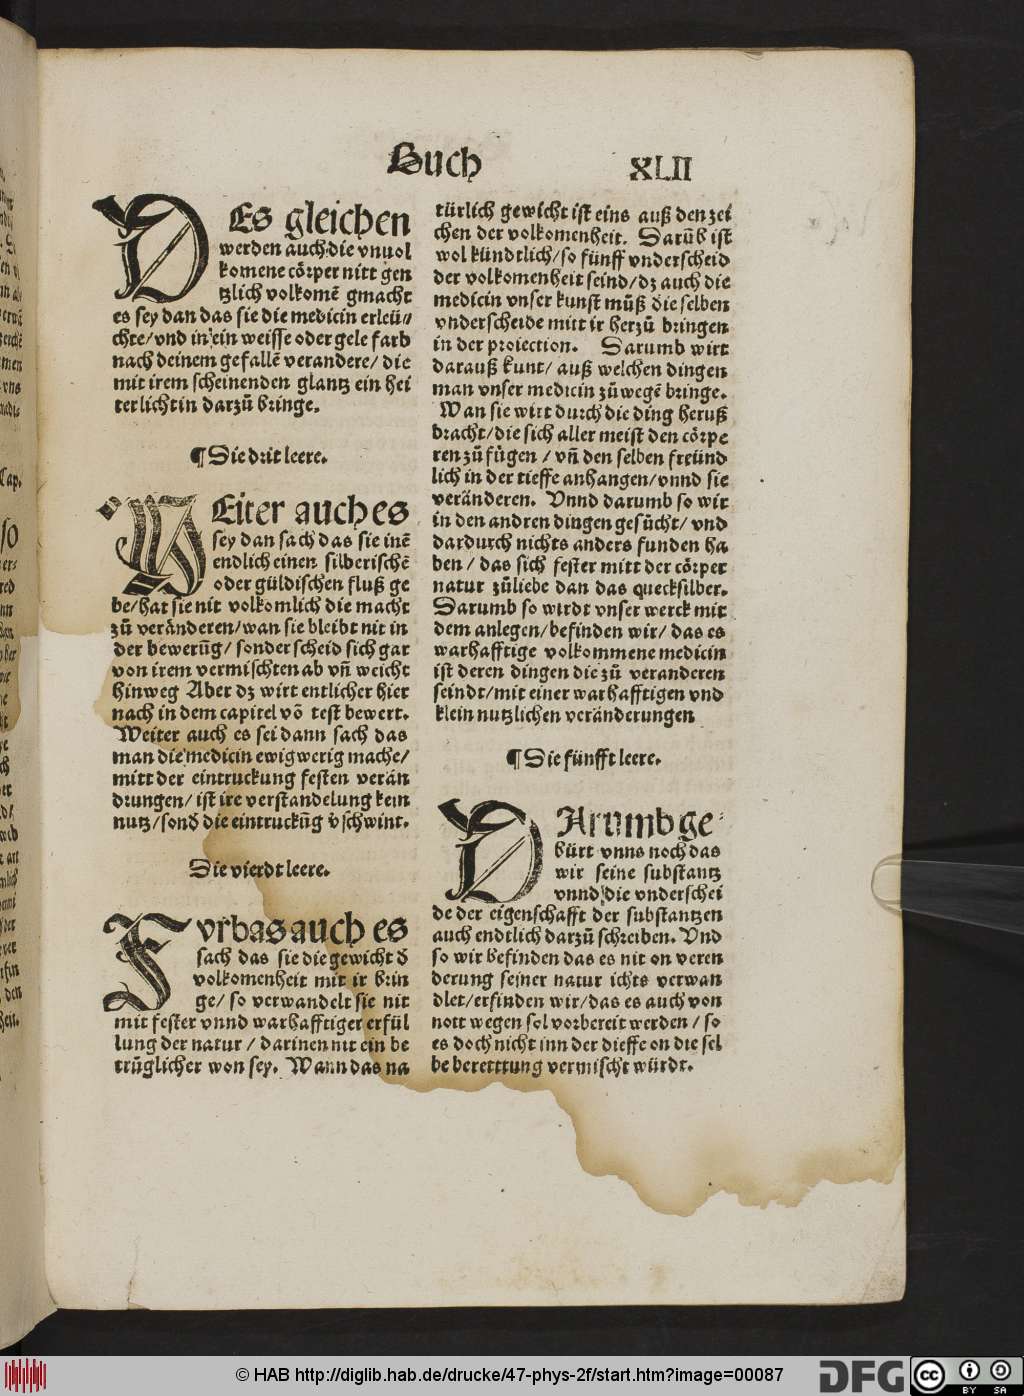 Buch XLII
DEs gleichen
werden auch die vnuol
komene cörper nitt gen
tzlich volkomē gmacht
es sey dan das sie die medicin erleü⸗
chte/vnd in ein weisse oder gele farb
nach deinem gefallē verandere/ die
mit irem scheinenden glantz ein hei
terlichtin darzů bringe.
¶Die drit leere.
WEiter auch es
sey dan sach das sie inē
endlich einen silberischē
oder güldischen fluß ge
be/hat sie nit volkomlich die macht
zů veränderen/wan sie bleibt nit in
der bewerūg/ sonder scheid sich gar
von irem vermischten ab vn̄ weicht
hinweg Aber dz wirt entlicher hier
nach in dem capitel vō test bewert.
Weiter auch es sei dann sach das
man die medicin ewig werig mache/
mitt der eintruckung festen verän
drungen/ ist ire verstandelung kein
nutz/sond̄ die eintruckūg v̄schwint.
Die vierdt leere.
Fvrbas auch es
sach das sie die gewicht d̄
volkomenheit mit ir brin
ge/ so verwandelt sie nit
mit fester vnnd warhafftiger erfül
lung der natur / darinen nit ein be
trüglicher won sey. Wann das na
türlich gewicht ist eins auß den zei
chen der volkomenheit. Darūb ist
wol kündtlich/so fünff vnderscheid
der volkomenheit seind/dz auch die
medicin vnser kunst můß die selben
vnderscheide mitt ir herzů bringen
in der proiection. Darumb wirt
darauß kunt/ auß welchen dingen
man vnser medicin zů wegē bringe.
Wan sie wirt durch die ding heruß
bracht/die sich aller meist den cörpe
ren zů fügen / vn̄ den selben freünd
lich in der tieffe anhangen/vnnd sie
veränderen. Vnnd darumb so wir
in den andren dingen gesücht/ vnd
dardurch nichts anders funden ha
ben / das sich fester mitt der cörper
natur zůliebe dan das quecksilber.
Darumb so wirdt vnser werck mit
dem anlegen/befinden wir/ das es
warhafftige volkommene medicin
ist deren dingen die zů veranderen
seindt/mit einer warhafftigen vnd
klein nutzlichen veränderungen
¶Die fünfft leere.
DArumb ge⸗
bürt vnns noch das
wir seine substantz
vnnd die vnderschei
de der eigenschafft der substantzen
auch endtlich darzů schreiben. Vnd
so wir befinden das es nit on veren
derung seiner natur ichts verwan
dlet/erfinden wir/das es auch von
nott wegen sol vorbereit werden / so
es doch nicht inn der dieffe on die sel
be beretttung vermischt würdt.
© HAB http://diglib.hab.de/drucke/47-phys-2f/start.htm?image=00087
DFG
cc BY SA